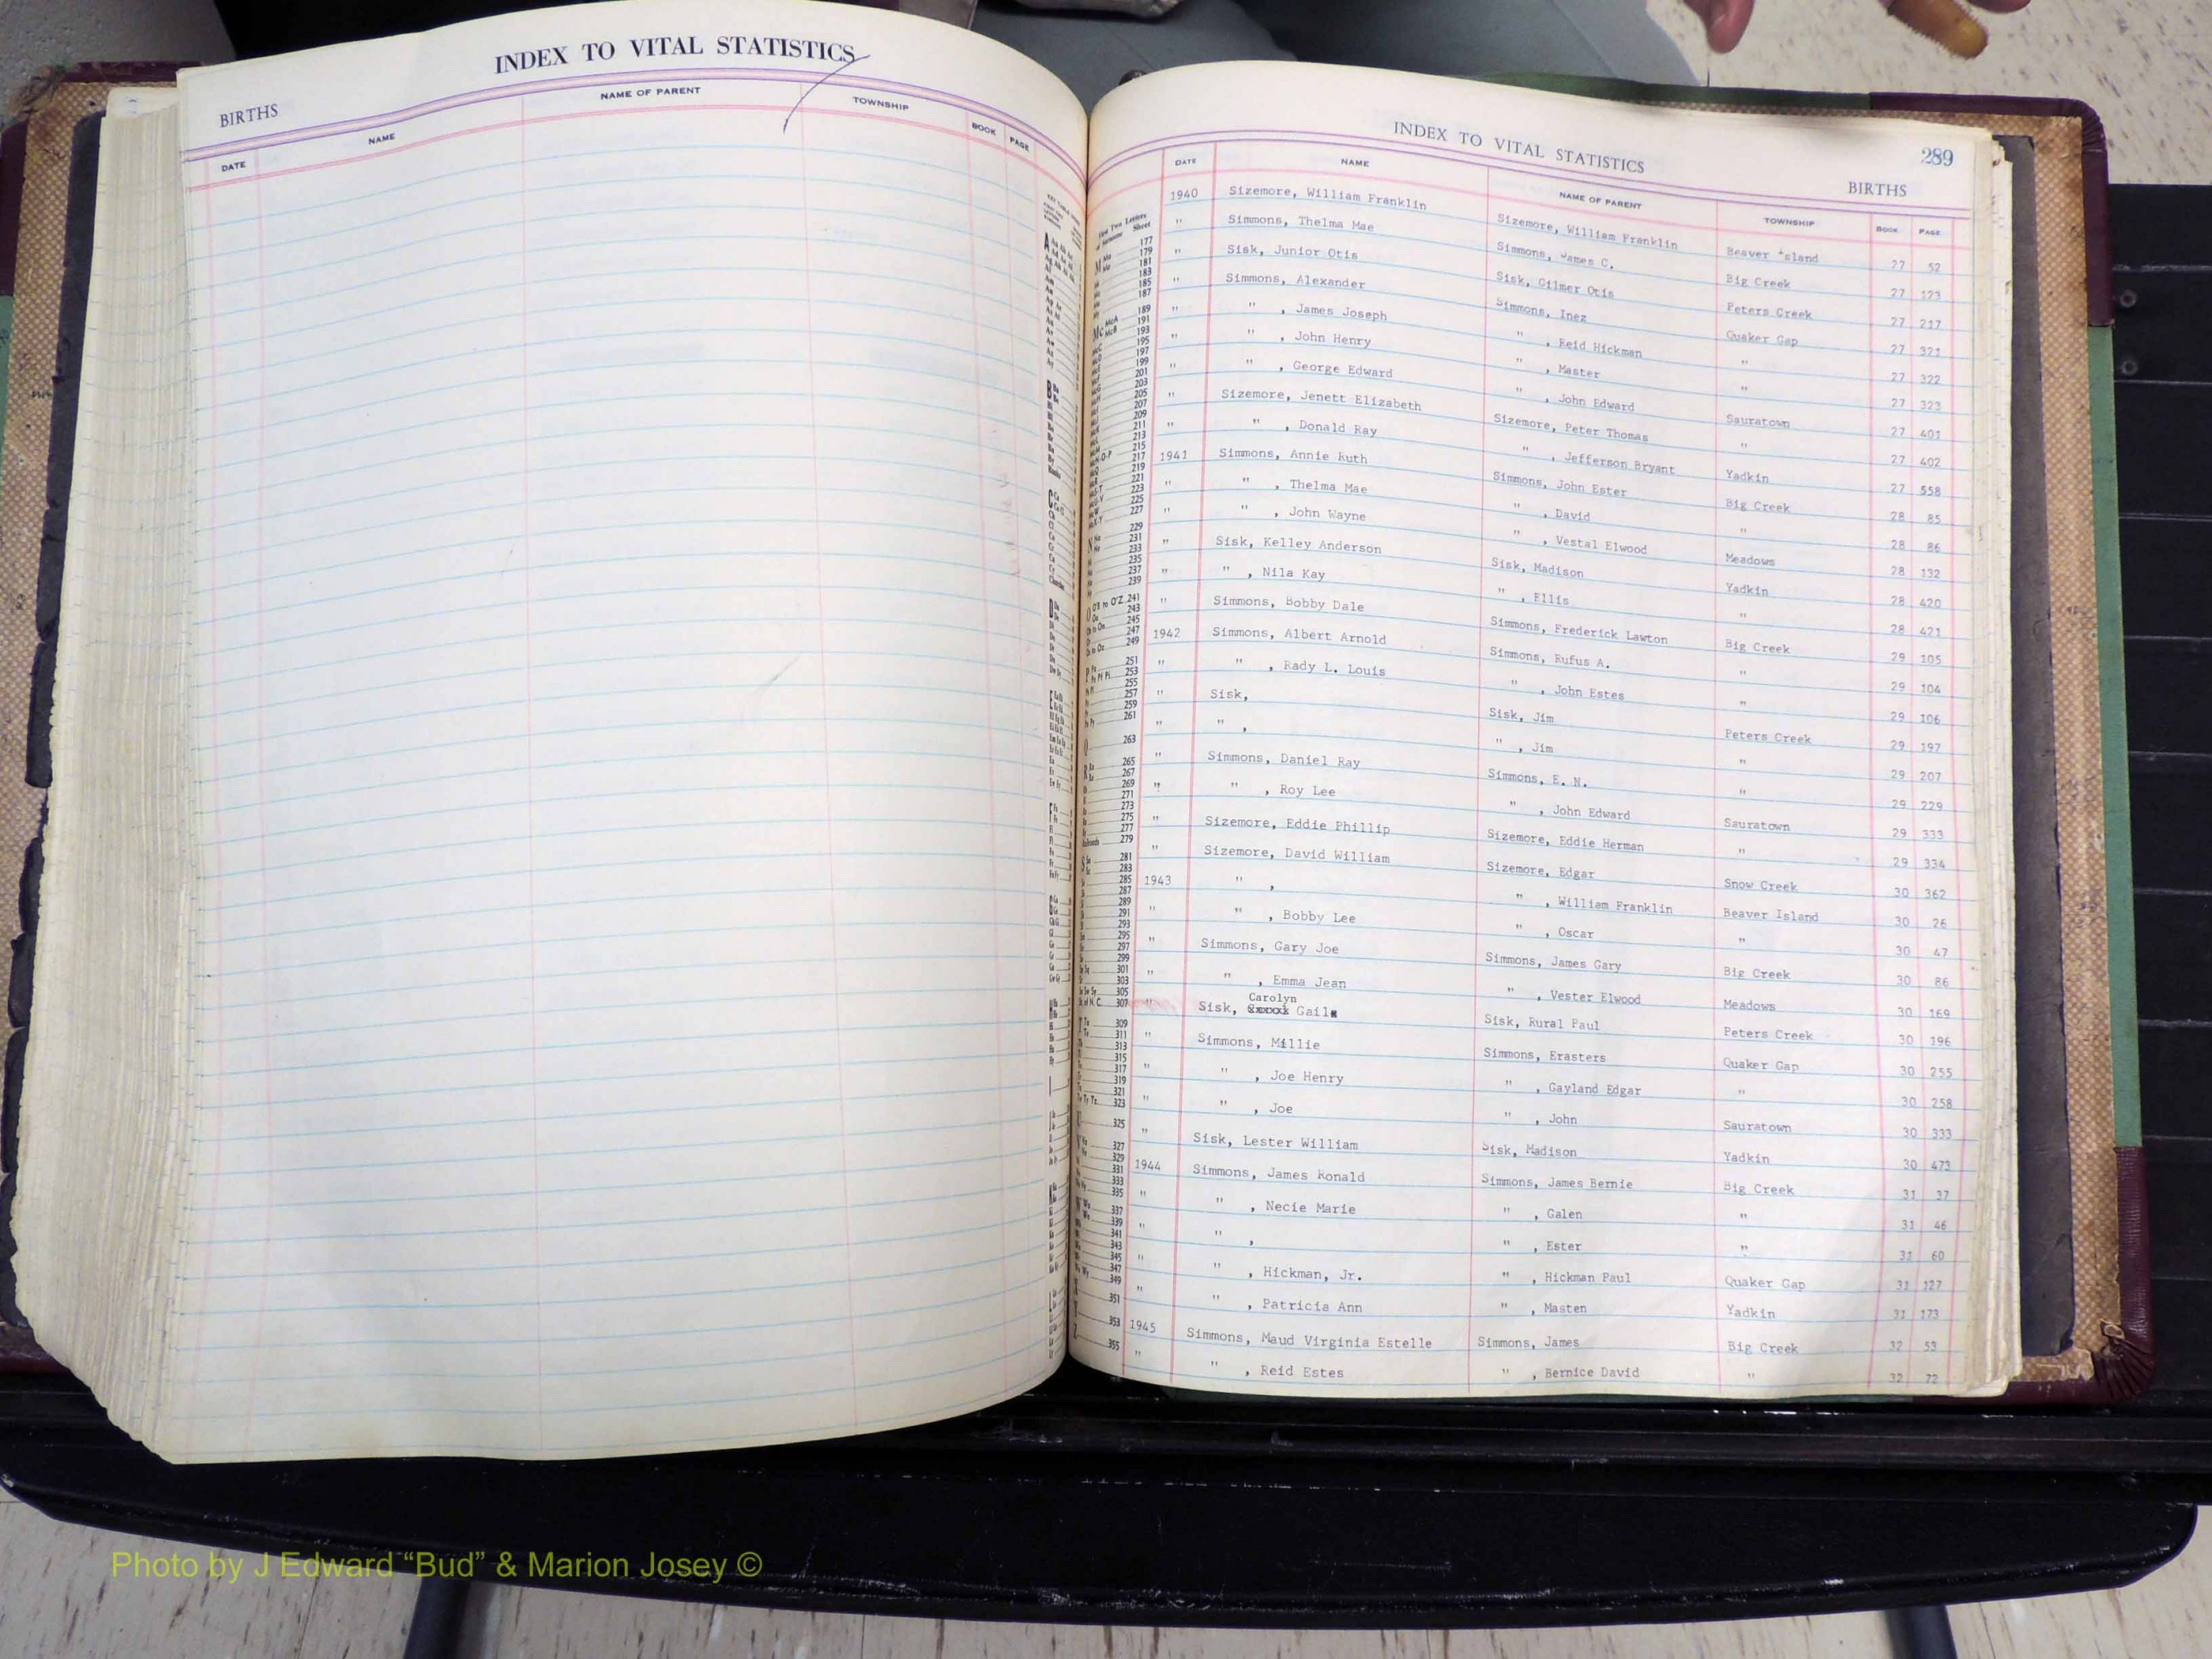 INDEX TO VITAL STATISTICS
BIRTHS
DATE NAME NAME OF PARENT TOWNSHIP BOOK PAGE
INDEX TO VITAL STATISTICS 289
BIRTHS
DATE NAME NAME OF PARENT TOWNSHIP BOOK PAGE
1940 Sizemore, William Franklin Sizemore, William Franklin Beaver Island 27 52
" Simmons, Thelma Mae Simmons, James C. Big Creek 27 123
" Sisk, Junior Otis Sisk, Gilmer Otis Peters Creek 27 217
" Simmons, Alexander Simmons, Inez Quaker Gap 27 321
" " , James Joseph " , Reid Hickman " 27 322
" " , John Henry " , Master " 27 323
" " , George Edward " , John Edward Sauratown 27 401
" Sizemore, Jenett Elizabeth Sizemore, Peter Thomas " 27 402
" " , Donald Ray " , Jefferson Bryant Yadkin 27 558
1941 Simmons, Annie Ruth Simmons, John Ester Big Creek 28 85
" " , Thelma Mae " , David " 28 86
" " , John Wayne " , Vestal Elwood Meadows 28 132
" Sisk, Kelley Anderson Sisk, Madison Yadkin 28 420
" " , Nila Kay " , Ellis " 28 421
" Simmons, Bobby Dale Simmons, Frederick Lawton Big Creek 29 105
1942 Simmons, Albert Arnold Simmons, Rufus A. " 29 104
" " , Rady L. Louis " , John Estes " 29 106
" Sisk, Sisk, Jim Peters Creek 29 197
" " , " , Jim " 29 207
" Simmons, Daniel Ray Simmons, E. N. " 29 229
" " , Roy Lee " , John Edward Sauratown 29 333
" Sizemore, Eddie Phillip Sizemore, Eddie Herman " 29 334
" Sizemore, David William Sizemore, Edgar Snow Creek 30 362
1943 " , " , William Franklin Beaver Island 30 26
" " , Bobby Lee " , Oscar " 30 47
" Simmons, Gary Joe Simmons, James Gary Big Creek 30 86
" " , Emma Jean " , Vester Elwood Meadows 30 169
Carolyn
" Sisk, Gail Sisk, Rural Paul Peters Creek 30 196
" Simmons, Millie Simmons, Erasters Quaker Gap 30 255
" " , Joe Henry " , Gayland Edgar " 30 258
" " , Joe " , John Sauratown 30 333
" Sisk, Lester William Sisk, Madison Yadkin 30 473
1944 Simmons, James Ronald Simmons, James Bernie Big Creek 31 37
" " , Necie Marie " , Galen " 31 46
" " , " , Ester " 31 60
" " , Hickman, Jr. " , Hickman Paul Quaker Gap 31 127
" " , Patricia Ann " , Masten Yadkin 31 173
1945 Simmons, Maud Virginia Estelle Simmons, James Big Creek 32 53
" " , Reid Estes " , Bernice David " 32 72
Photo by J Edward “Bud” & Marion Josey ©